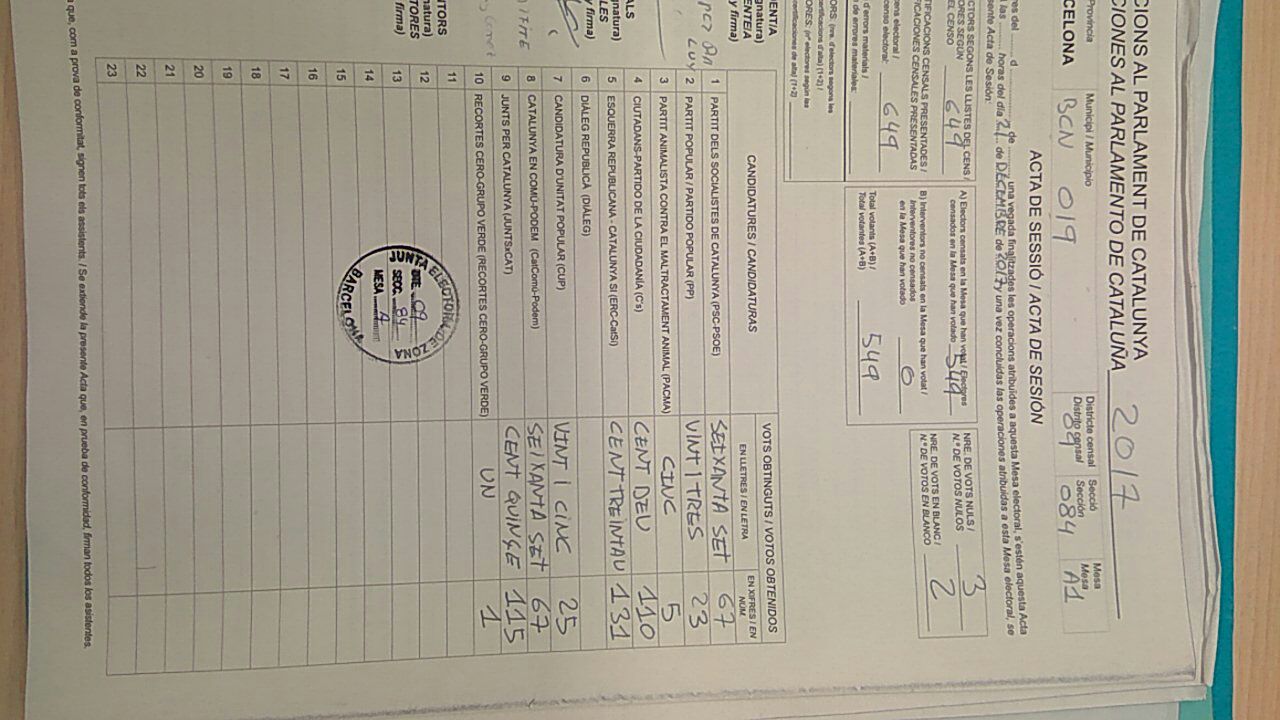 CIONS AL PARLAMENT DE CATALUNYA
CIONES AL PARLAMENTO DE CATALUÑA 2017
Província
CELONA
Municipi / Municipio
BCN 019
Districte censal
Distrito censal
09
Secció
Sección
084
Mesa
Mesa
A1
ACTA DE SESSIÓ / ACTA DE SESIÓN
una vegada finalitzades les operacions atribuïdes a aquesta Mesa electoral, s'estén aquesta Acta
horas del día 21 de DECEMBRE de 2017 y una vez concluidas las operaciones atribuidas a esta Mesa electoral, se
sente Acta de Sesión:
CTORS SEGONS LES LLISTES DEL CENS /
ORES SEGÚN
DEL CENSO 648
TIFICACIONS CENSALS PRESENTADES /
FICACIONES CENSALES PRESENTADAS
cens electoral /
censo electoral: 649
d'errors materials /
de errores materiales:
A) Electors censats en la Mesa que han votat / Electores
censados en la Mesa que han votado 549
B) Interventors no censats en la Mesa que han votat /
Interventores no censados
en la Mesa que han votado 0
Total votants (A+B) /
Total votantes (A+B) 549
NRE. DE VOTS NULS /
N.º DE VOTOS NULOS 3
NRE. DE VOTS EN BLANC /
N.º DE VOTOS EN BLANCO 2
CANDIDATURES / CANDIDATURAS
VOTS OBTINGUTS / VOTOS OBTENIDOS
EN LLETRES / EN LETRA
EN XIFRES / EN NÚM.
1 PARTIT DELS SOCIALISTES DE CATALUNYA (PSC-PSOE) SEIXANTA SET 67
2 PARTIT POPULAR / PARTIDO POPULAR (PP) VINT I TRES 23
3 PARTIT ANIMALISTA CONTRA EL MALTRACTAMENT ANIMAL (PACMA) CINC 5
4 CIUTADANS-PARTIDO DE LA CIUDADANÍA (C's) CENT DEU 110
5 ESQUERRA REPUBLICANA - CATALUNYA SÍ (ERC-CatSí) CENT TREINTAU 131
6 DIÀLEG REPUBLICÀ (DIÀLEG)
7 CANDIDATURA D'UNITAT POPULAR (CUP) VINT I CINC 25
8 CATALUNYA EN COMÚ-PODEM (CatComú-Podem) SEIXANTA SET 67
9 JUNTS PER CATALUNYA (JUNTSxCAT) CENT QUINZE 115
10 RECORTES CERO-GRUPO VERDE (RECORTES CERO-GRUPO VERDE) UN 1
11
12
13
14
15
16
17
18
19
20
21
22
23
JUNTA ELECTORAL DE ZONA
DTE. 09
SECC. 84
MESA A
BARCELONA
a que, com a prova de conformitat, signen tots els assistents. / Se extiende la presente Acta que, en prueba de conformidad, firman todos los asistentes.